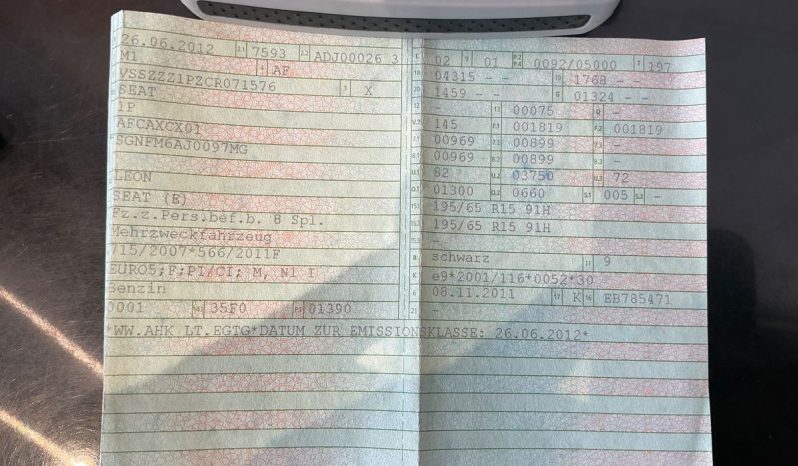 26.06.2012 2.1 7593 2.2 ADJ00026 3
M1 4 AF
VSSZZZ1PZCR071576 3 X
SEAT
1P
AFCAXCX01
SGNFM6AJ0097MG
LEON
SEAT (E)
Fz.z.Pers.bef.b. 8 Spl.
Mehrzweckfahrzeug
715/2007*566/2011F
EURO5;F;PI/CI; M, N1 I
Benzin
0001 35F0 P.1 01390
*WW.AHK LT.EGTG*DATUM ZUR EMISSIONSKLASSE: 26.06.2012*
L 02 9 01 P.2 P.4 0092/05000 T 197
18 04315 - - 19 1768 - -
20 1459 - - G 01324 - -
12 - 13 00075 Q -
V.7 145 F.1 001819 F.2 001819
7.1 00969 7.2 00899 7.3 -
8.1 00969 8.2 00899 8.3 -
U.1 82 U.2 03750 U.3 72
O.1 01300 O.2 0660 S.1 005 S.2 -
15.1 195/65 R15 91H
15.2 195/65 R15 91H
15.3 -
R schwarz 11 9
K e9*2001/116*0052*30
6 08.11.2011 17 K 16 EB785471
21 -